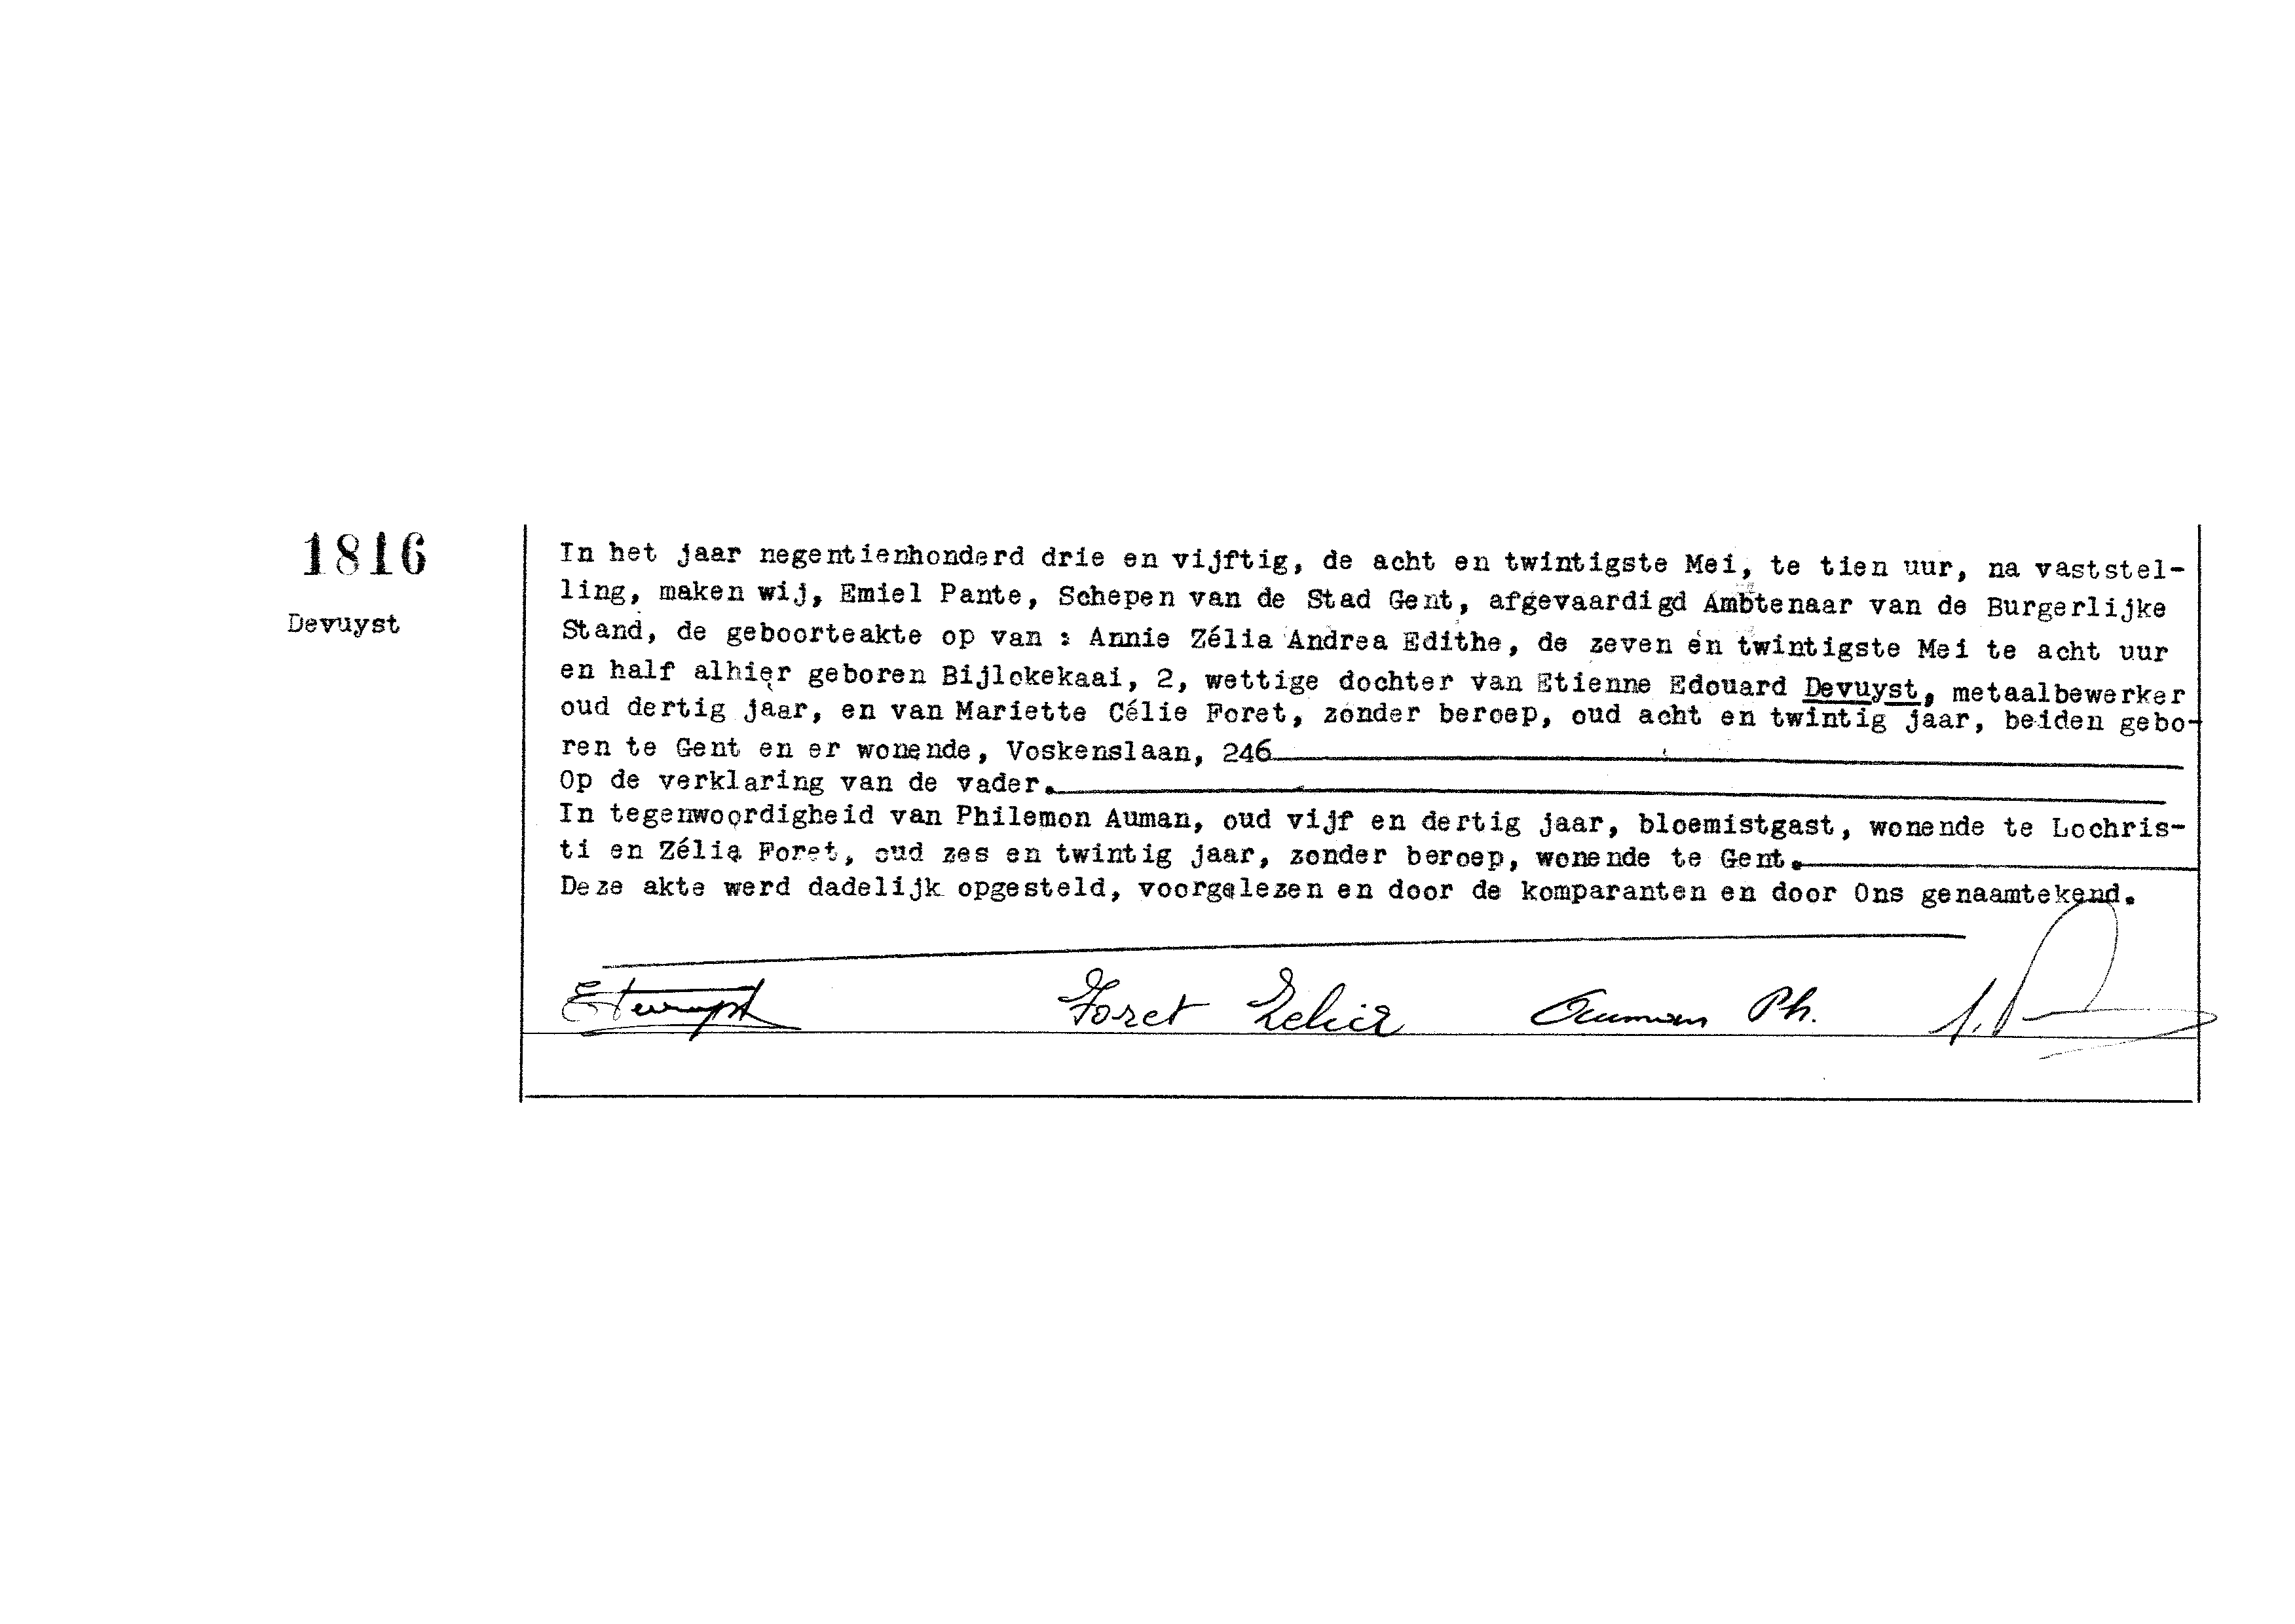 1816
Devuyst
In het jaar negentienhonderd drie en vijftig, de acht en twintigste Mei, te tien uur, na vaststel-
ling, maken wij, Emiel Pante, Schepen van de Stad Gent, afgevaardigd Ambtenaar van de Burgerlijke
Stand, de geboorteakte op van : Annie Zélia Andrea Edithe, de zeven en twintigste Mei te acht uur
en half alhier geboren Bijlokekaai, 2, wettige dochter van Etienne Edouard Devuyst, metaalbewerker
oud dertig jaar, en van Mariette Célie Foret, zonder beroep, oud acht en twintig jaar, beiden gebo-
ren te Gent en er wonende, Voskenslaan, 246
Op de verklaring van de vader.
In tegenwoordigheid van Philemon Auman, oud vijf en dertig jaar, bloemistgast, wonende te Lochris-
ti en Zélia Foret, oud zes en twintig jaar, zonder beroep, wonende te Gent.
Deze akte werd dadelijk opgesteld, voorgelezen en door de komparanten en door Ons genaamtekend.
Foret Zelia Auman Ph.